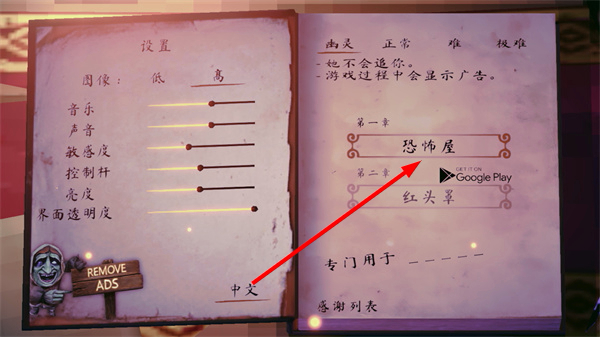 设置
图像： 低 高
音乐
声音
敏感度
控制杆
亮度
界面透明度
REMOVE
ADS
中文
幽灵 正常 难 极难
- 她不会追你。
- 游戏过程中会显示广告。
第一章
恐怖屋
第二章
GET IT ON
Google Play
红头罩
专门用于 _ _ _ _ _
感谢列表